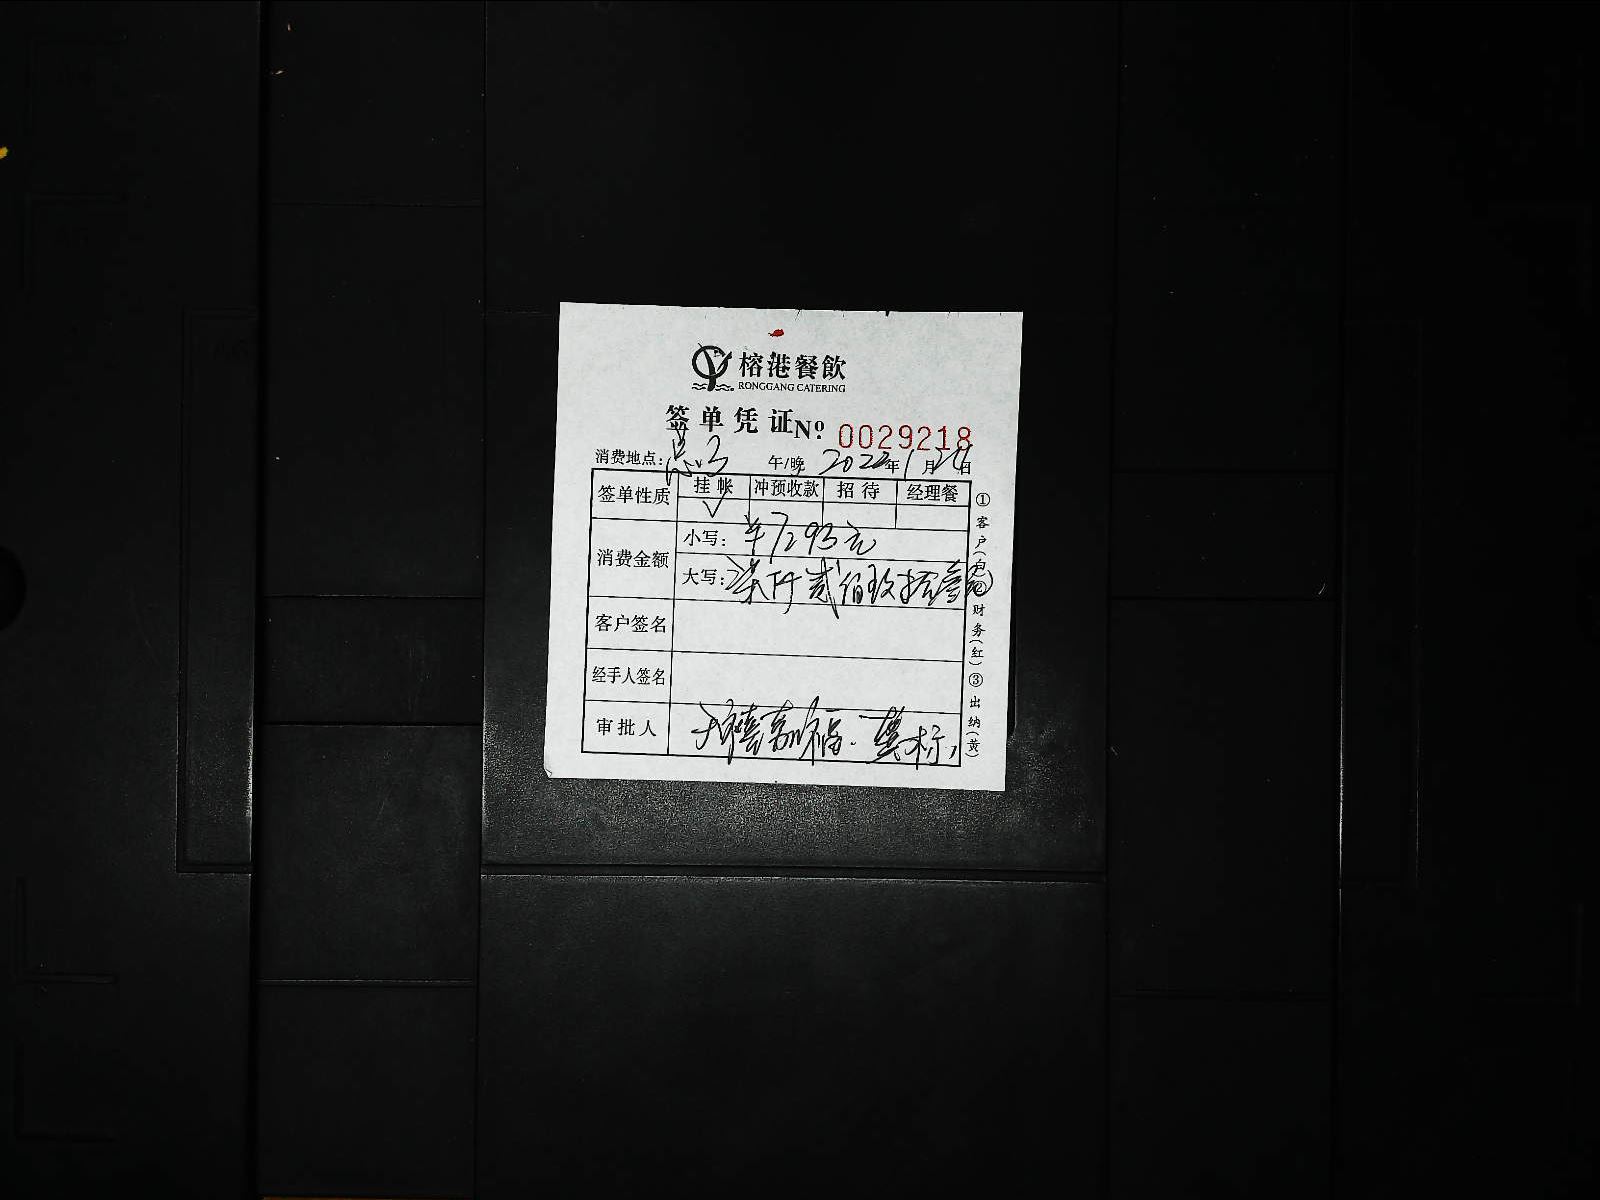 榕港餐飲
RONGGANG CATERING
签单凭证 Nº 0029218
消费地点: 午/晚 2022年1月24日
签单性质 挂帐 冲预收款 招待 经理餐
√
消费金额 小写: ¥7293元
大写: 柒仟贰佰玖拾叁元
客户签名
经手人签名
审批人
①客户(白)②财务(红)③出纳(黄)